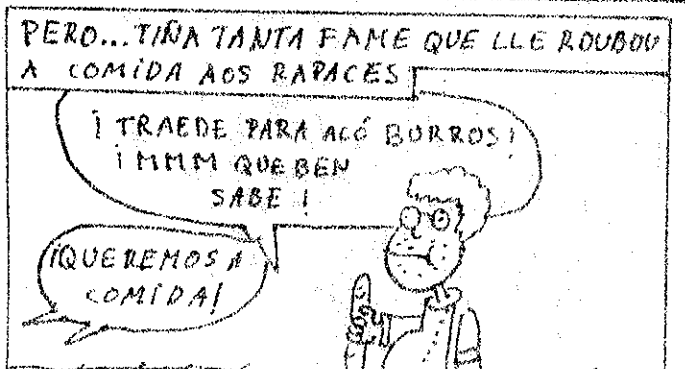 PERO...TIÑA TANTA FAME QUE LLE ROUBOU
A COMIDA AOS RAPACES
¡TRAEDE PARA ACÓ BURROS!
¡MMM QUE BEN
SABE!
¡QUEREMOS A
COMIDA!